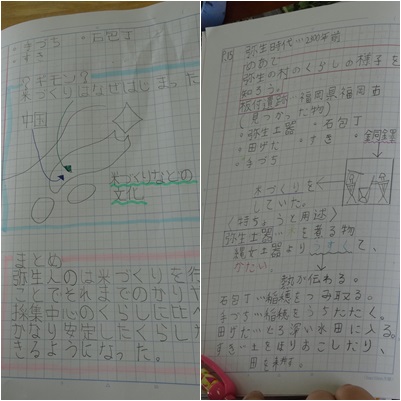 ・手づち ・石包丁
・すき
ギモン?
米づくりはなぜはじまった
中国
米づくりなどの
文化
まとめ
弥生人のは米づくりを作
ことでそれまでのかりや
採集中心のくらしに比べ
かなり安定したくらしが
きるようになった。
弥生時代〜2000年前
めあて
弥生の村のくらしの様子を
知ろう。
板付遺跡・福岡県福岡市
(見つかった物)
・弥生土器 ・石包丁
・田げた ・すき ・銅鐸
・手づち
米づくりを
していた。
(特ちょうと用途)
弥生土器…を煮る物
縄文土器よりうすくて、
かたい。
熱が伝わる。
石包丁…稲穂をつみ取る。
手づち…稲穂をうちたたく。
田げた…どろ深い水田に入る。
すき…土をほりおこしたり、
田を耕す。